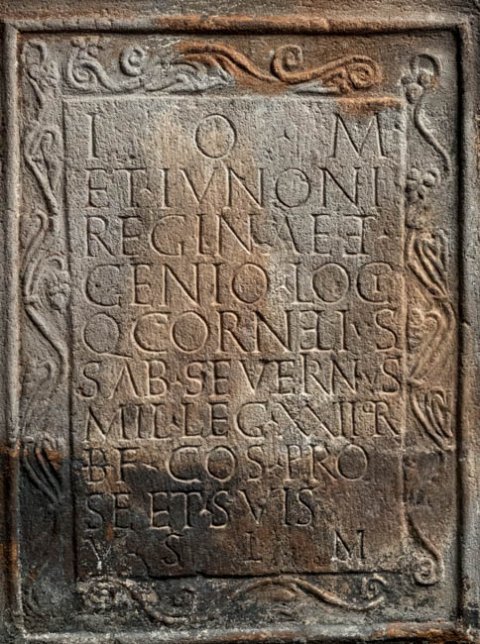 I O M
ET·IVNONI
REGINAE ET·
GENIO·LOCI
Q CORNELI·VS
SAB·SEVERNVS
MIL·LEG·XXII·P·R
BF·COS·PRO
SE ET·SVIS
V S L M